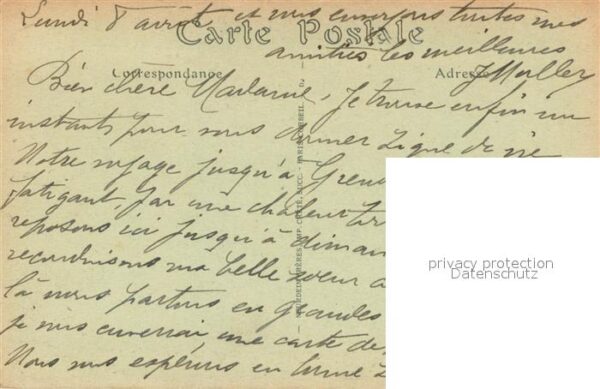 Lundi 8 avril et nous envoyons toutes mes
Carte Postale
amitiés les meilleures
Correspondance
Adresse
J Muller
Bien chère Madame, Je trouve enfin un
instant pour vous donner signe de vie
Notre voyage jusqu'à Greno
fatigant, par une chaleur
reposons ici jusqu'à diman
reconduisons ma belle soeur a
là nous partons en grandes
je vous enverrai une carte de
Nous vous espérons en bonne
PARIS-CORBEIL
privacy protection
Datenschutz